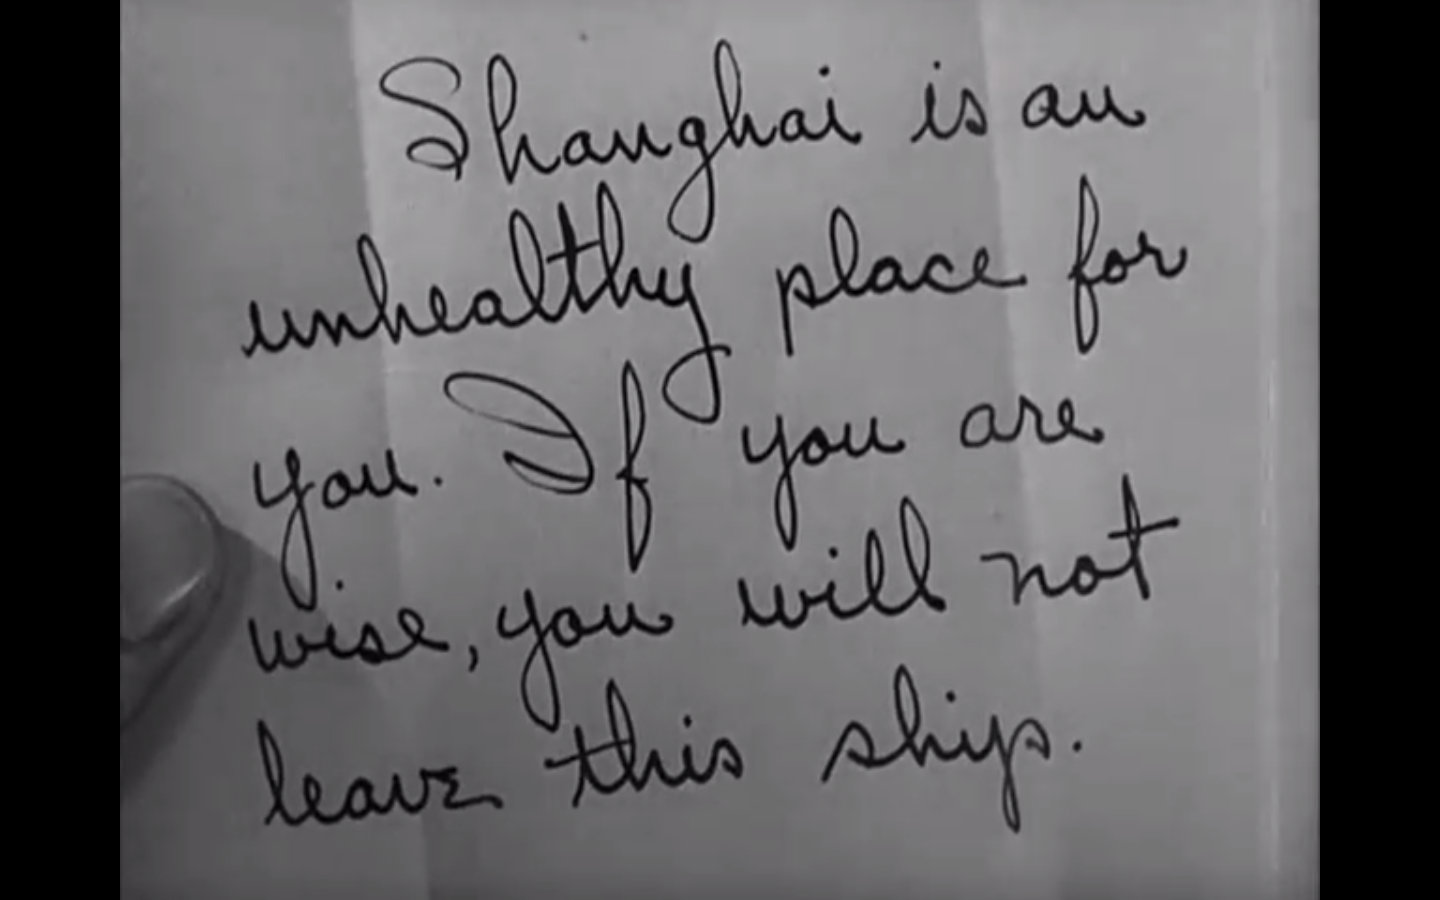 Shanghai is an
unhealthy place for
you. If you are
wise, you will not
leave this ship.